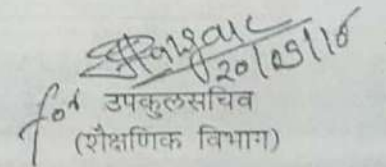 20/09/16
for उपकुलसचिव
(शैक्षणिक विभाग)